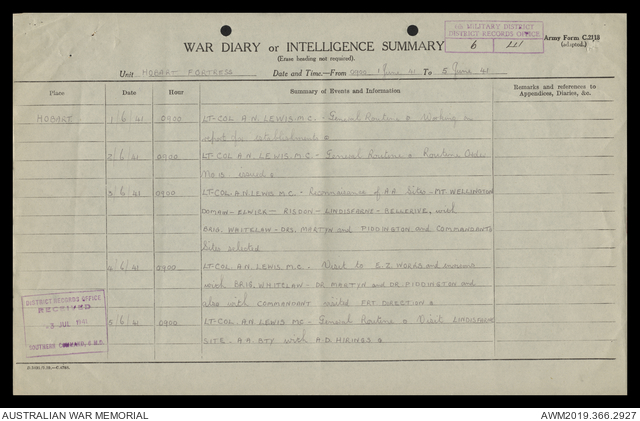 6th MILITARY DISTRICT
DISTRICT RECORDS OFFICE
6 III
Army Form C.2118
(adapted.)
WAR DIARY or INTELLIGENCE SUMMARY
(Erase heading not required).
Unit HOBART FORTRESS Date and Time—From 0900 1 June 41 To 5 June 41
Place Date Hour Summary of Events and Information Remarks and references to Appendices, Diaries, &c.
HOBART 1/6/41 0900 LT-COL A.N. LEWIS. M.C. - General Routine & Working on
report for establishments
2/6/41 0900 LT-COL A.N. LEWIS. M.C. - General Routine & Routine Order
No 13 issued
3/6/41 0900 LT-COL A.N. LEWIS M.C. - Reconnaissance of A.A. Sites - MT. WELLINGTON
DOMAIN - ELWICK - RISDON - LINDISFARNE - BELLERIVE, with
BRIG. WHITELAW - DRS. MARTYN and PIDDINGTON and COMMANDANT
Sites selected
4/6/41 0900 LT-COL. A.N. LEWIS. M.C. - Visit to E-Z WORKS and
with BRIG. WHITELAW - DR MARTYN and DR. PIDDINGTON and
also with COMMANDANT visited FRT. DIRECTION
5/6/41 0900 LT-COL. A.N LEWIS MC - General Routine & Visit LINDISFARNE
SITE - A.A. BTY with A.D. HIRINGS
DISTRICT RECORDS OFFICE
RECEIVED
JUL 1941
SOUTHERN COMMAND, 6 M.D.
AUSTRALIAN WAR MEMORIAL
AWM2019.366.2927